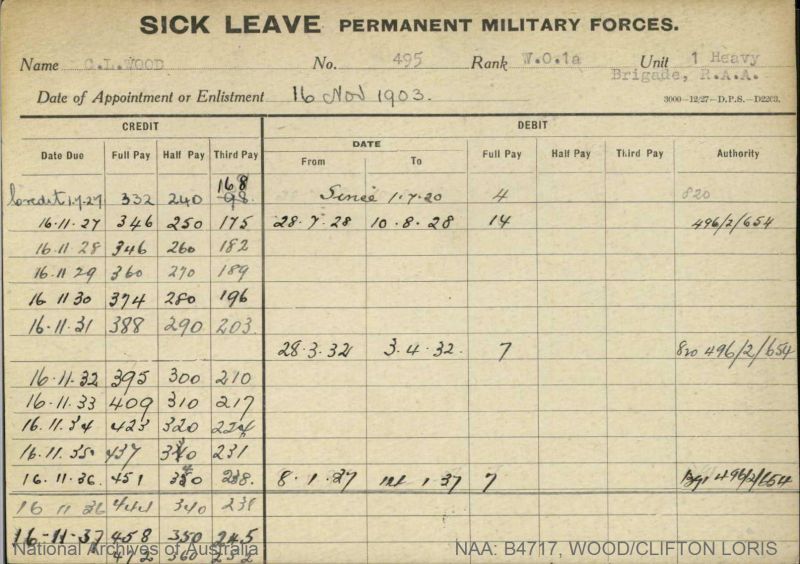 SICK LEAVE PERMANENT MILITARY FORCES.
Name C.L.WOOD No. 495 Rank W.O.1a Unit 1 Heavy
Brigade, R.A.A.
Date of Appointment or Enlistment 16 Nov 1903. 3000—12/27—D.P.S.—D2203.
CREDIT DEBIT
Date Due Full Pay Half Pay Third Pay DATE From To Full Pay Half Pay Third Pay Authority
168
Credit 1.7.27 332 240 98 Since 1.7.20 4 820
16.11.27 346 250 175 28.7.28 10.8.28 14 496/2/654
16.11 28 346 260 182
16.11 29 360 270 189
16 11 30 374 280 196
16.11.31 388 290 203.
28.3.32 3.4.32. 7 820 496/2/654
16.11.32 395 300 210
16.11.33 409 310 217
16.11.34 423 320 224
16.11.35 437 231
16.11.36. 451 238. 8.1.37 1.37 7 496/2/654
16 11 36 444 340 238
16-11-37 458 350 245
472 360 252
National Archives of Australia NAA: B4717, WOOD/CLIFTON LORIS